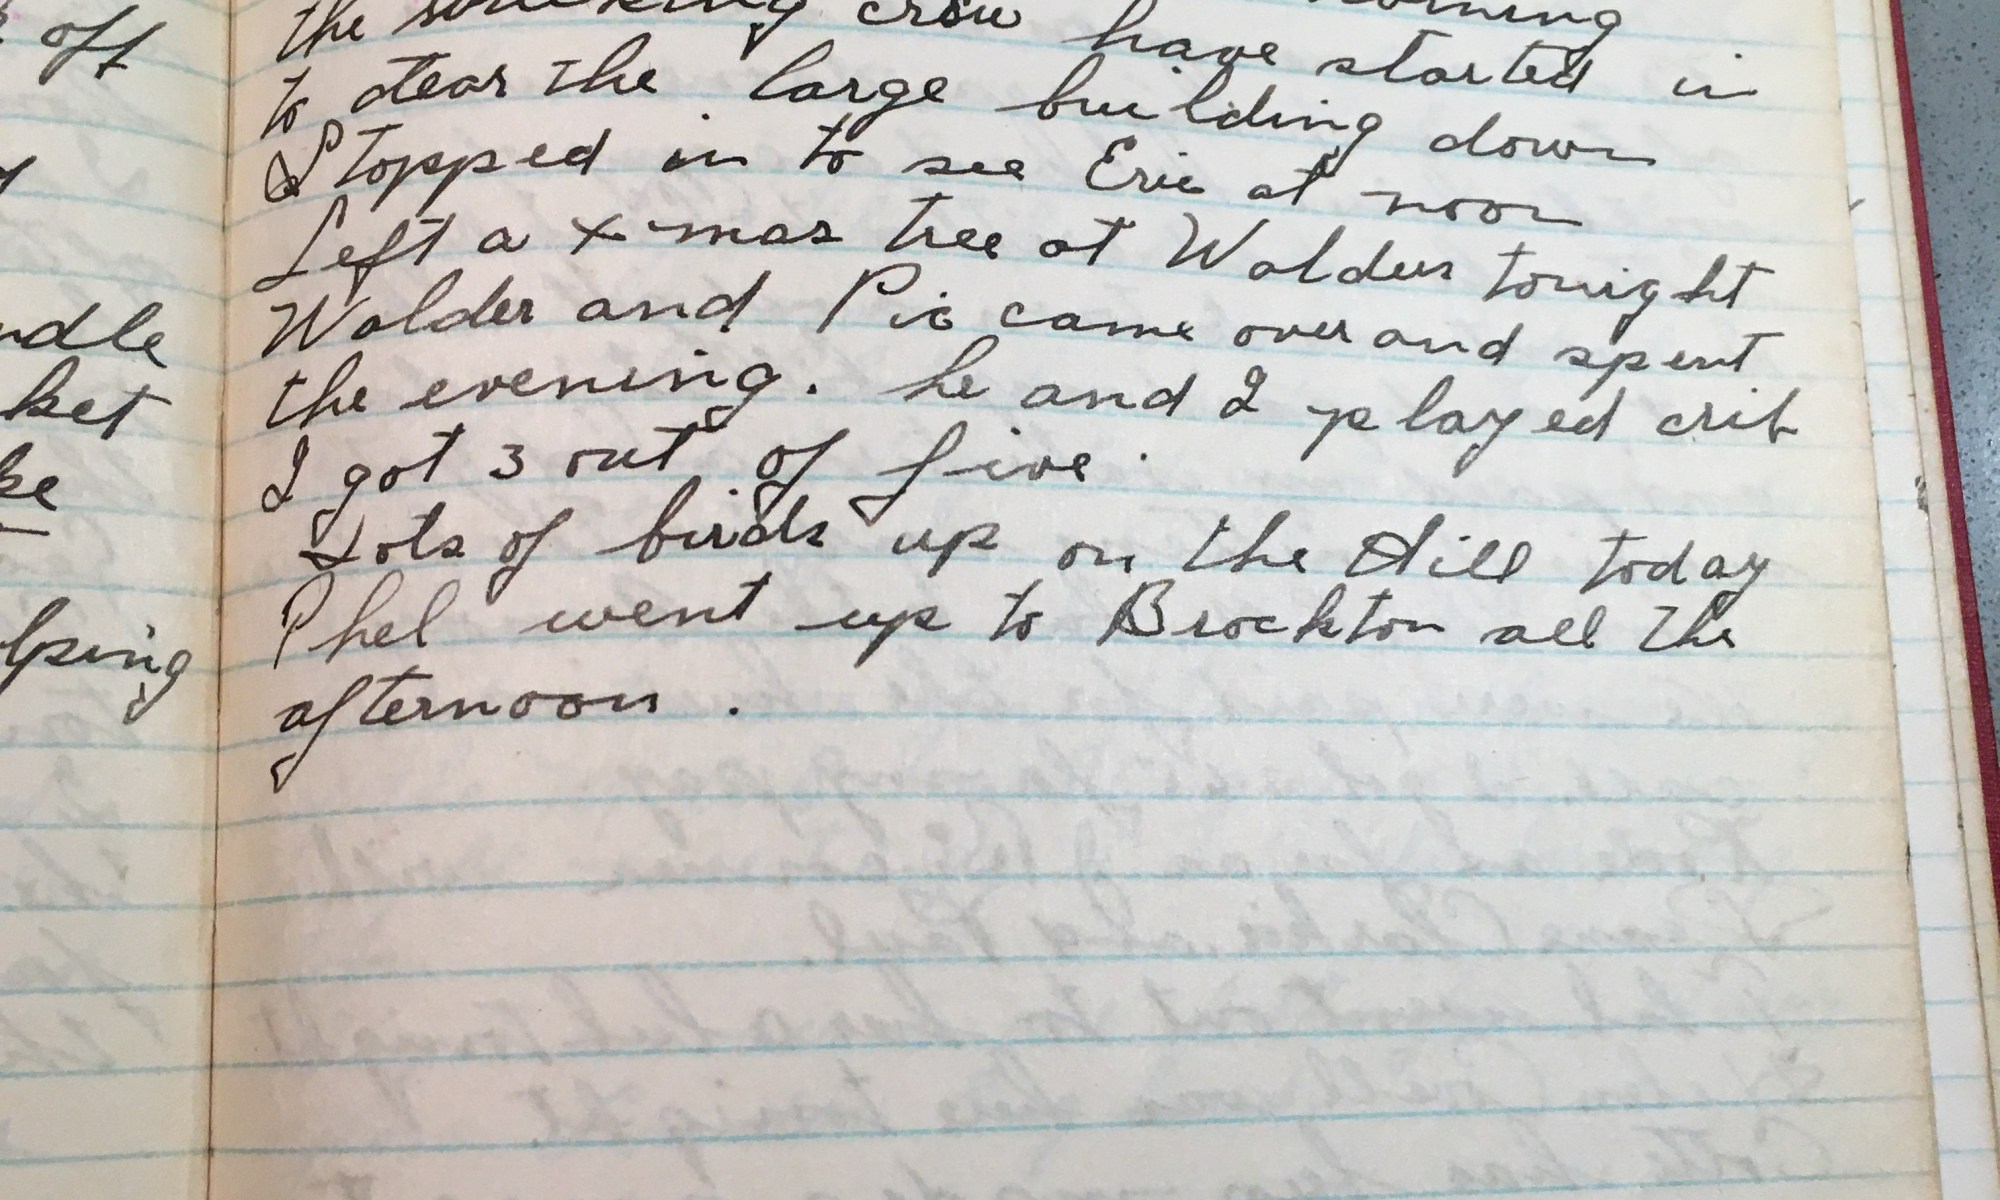 off
ndle
ket
ke
lping
the crew have started in
to tear the large building down
Stopped in to see Eric at noon
Left a x-mas tree at Walders tonight
Walder and Pic came over and spent
the evening. he and I played crib
I got 3 out of five.
Lots of birds up on the Hill today
Phel went up to Brockton all the
afternoon.